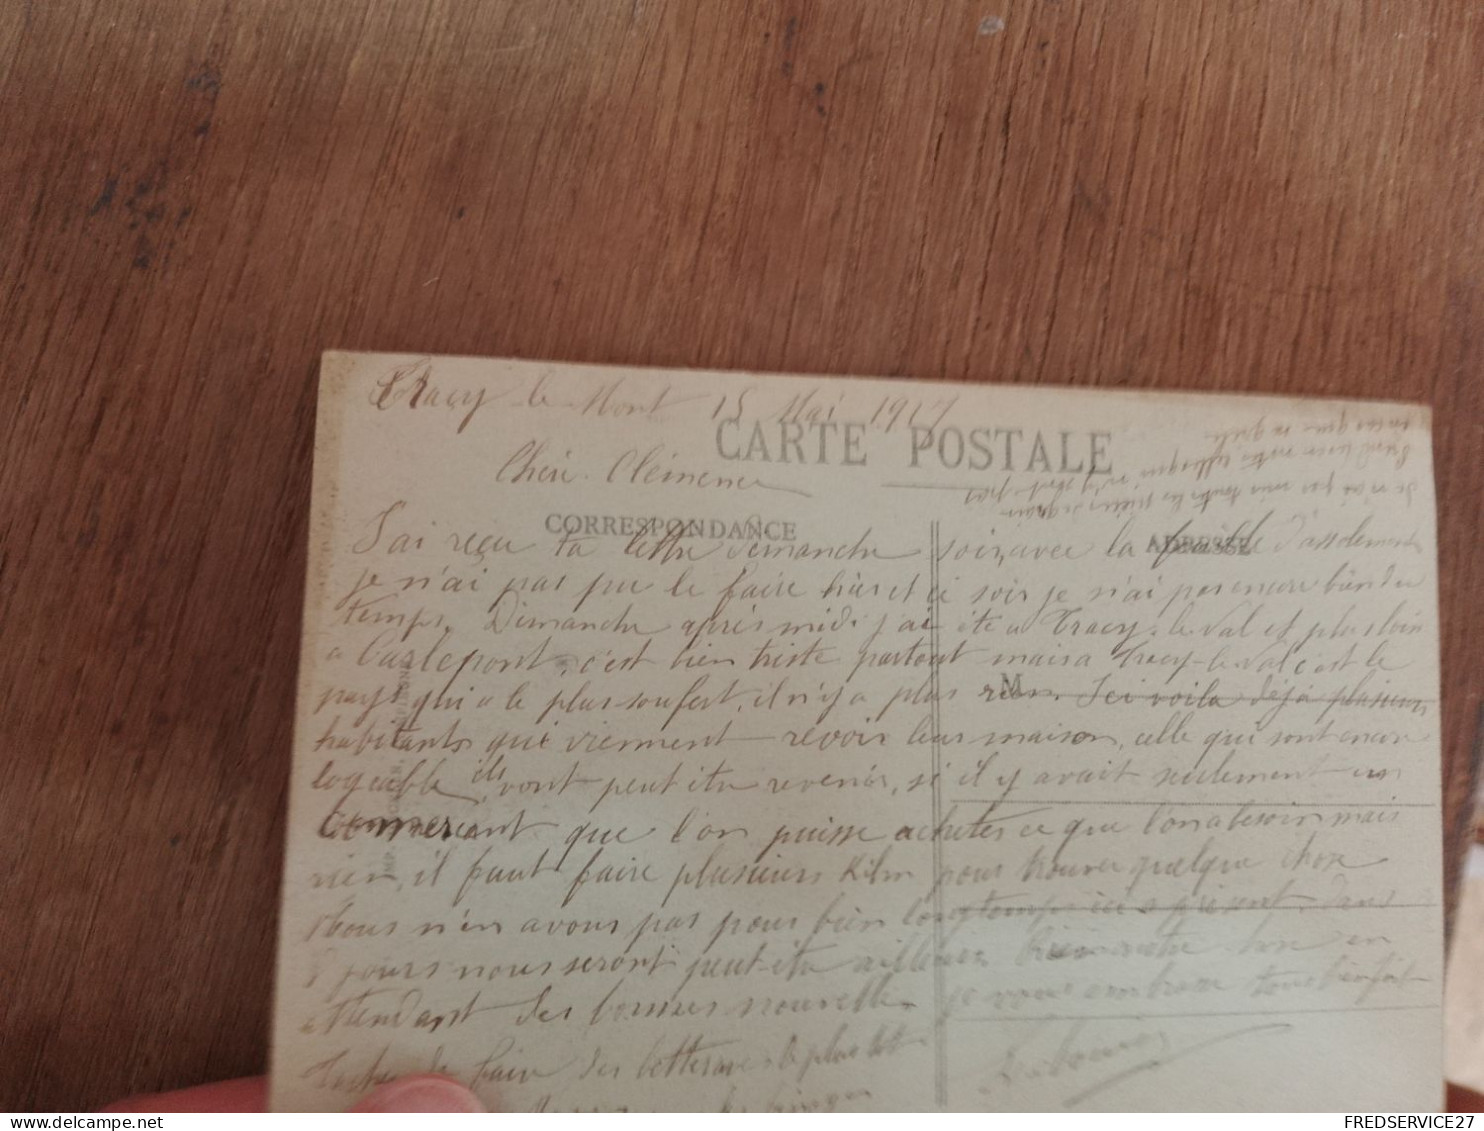 Tracy-le-Mont 15 Mai 1917
CARTE POSTALE
Chère Clémence
CORRESPONDANCE
ADRESSE
J'ai reçu ta lettre dimanche soir, avec la feuille d'assolement
je n'ai pas pu le faire hier et ce soir je n'ai pas encore bien de
temps. Dimanche après midi j'ai été a Tracy-le-Val et plus loin
a Carlepont, c'est bien triste partout mais a Tracy-le-Val c'est le
pays qui a le plus souffert, il n'y a plus rien. Ici voila déjà plusieurs
M
habitants qui viennent revoir leur maison, celle qui sont encore
logeable ils vont peut etre revenir, si il y avait seulement un
commercant que l'on puisse acheter ce que l'on a besoin mais
rien, il faut faire plusieurs kilm pour trouver quelque chose
Nous n'en avons pas pour bien longtemps ici a présent. dans
8 jours nous seront peut-etre ailleurs
attendant des bonnes nouvelles je vous embrasse tous bien fort
de faire des le plus tot
FREDSERVICE27